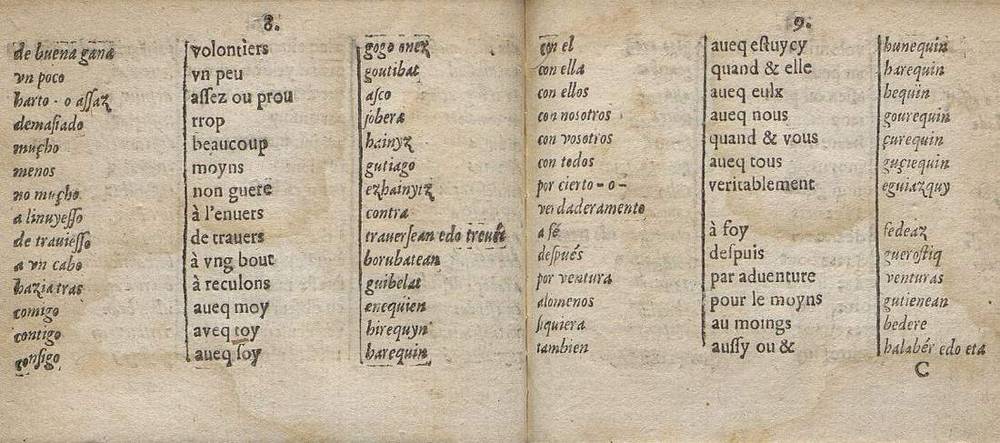 8.
de buena gana volontiers gogo onez
vn poco vn peu goutibat
harto - o assaz assez ou prou asco
demasiado rrop jobera
mucho beaucoup hainyz
menos moyns gutiago
no mucho non guere ezhainytz
a linuyesso à l'enuers contra
de trauiesso de trauers trauersean edo
a vn cabo à vng bout borubatean
hazia tras à reculons guibelat
comigo aueq moy enequien
contigo aveq toy hirequyn
consigo aueq soy harequin
9.
con el aueq estuycy hunequin
con ella quand & elle harequin
con ellos aueq eulx hequin
con nosotros aueq nous gourequin
con vosotros quand & vous çurequin
con todos aueq tous guçiequin
por cierto - o - veritablement eguiazquy
verdaderamente
a fé à foy fedeaz
despues despuis guerostiq
por ventura par aduenture venturas
alomenos pour le moyns gutienean
siquiera au moings bedere
tambien aussy ou & halabér edo eta
C